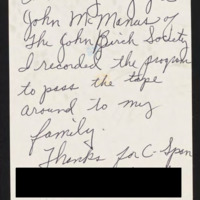 John McManus of
The John Birch Society
I recorded the program
to pass the tape
around to my
family.
Thanks for C-Span